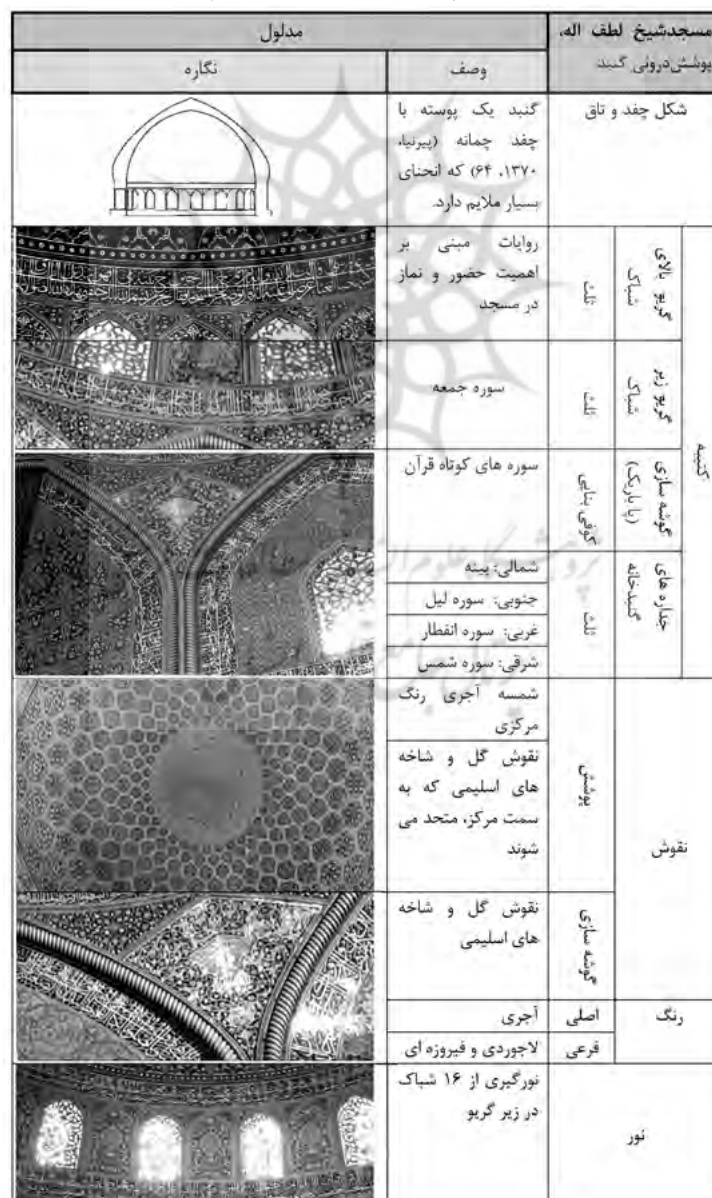 مسجدشیخ لطف اله،
پوشش‌درونی گنبد
مدلول
وصف
نگاره
شکل چفد و تاق
گنبد یک پوسته با
چفد چمانه (پیرنیا،
۱۳۷۰، ۶۴) که انحنای
بسیار ملایم دارد.
کتیبه
گریو بالای
شباک
ثلث
روایات مبنی بر
اهمیت حضور و نماز
در مسجد
گریو زیر
شباک
ثلث
سوره جمعه
گوشه سازی
(پا باریک)
کوفی بنایی
سوره های کوتاه قرآن
جداره های
گنبدخانه
ثلث
شمالی: بینه
جنوبی: سوره لیل
غربی: سوره انفطار
شرقی: سوره شمس
نقوش
پوشش
شمسه آجری رنگ
مرکزی
نقوش گل و شاخه
های اسلیمی که به
سمت مرکز، متحد می
شوند
گوشه سازی
نقوش گل و شاخه
های اسلیمی
رنگ
اصلی
آجری
فرعی
لاجوردی و فیروزه ای
نور
نورگیری از ۱۶ شباک
در زیر گریو